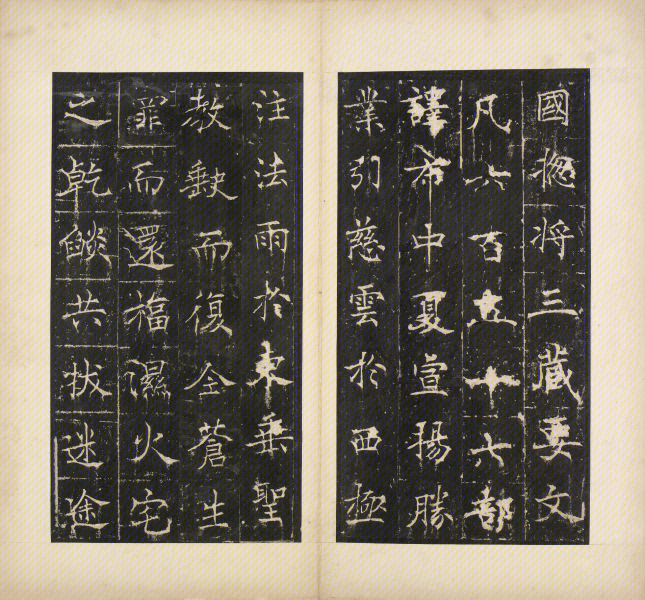 國惣將三藏要文
凡六百五十六部
譯布中夏宣揚勝
業引慈雲於西極
注法雨於東垂聖
教缺而復全蒼生
罪而還福濕火宅
之乾燄共拔迷途